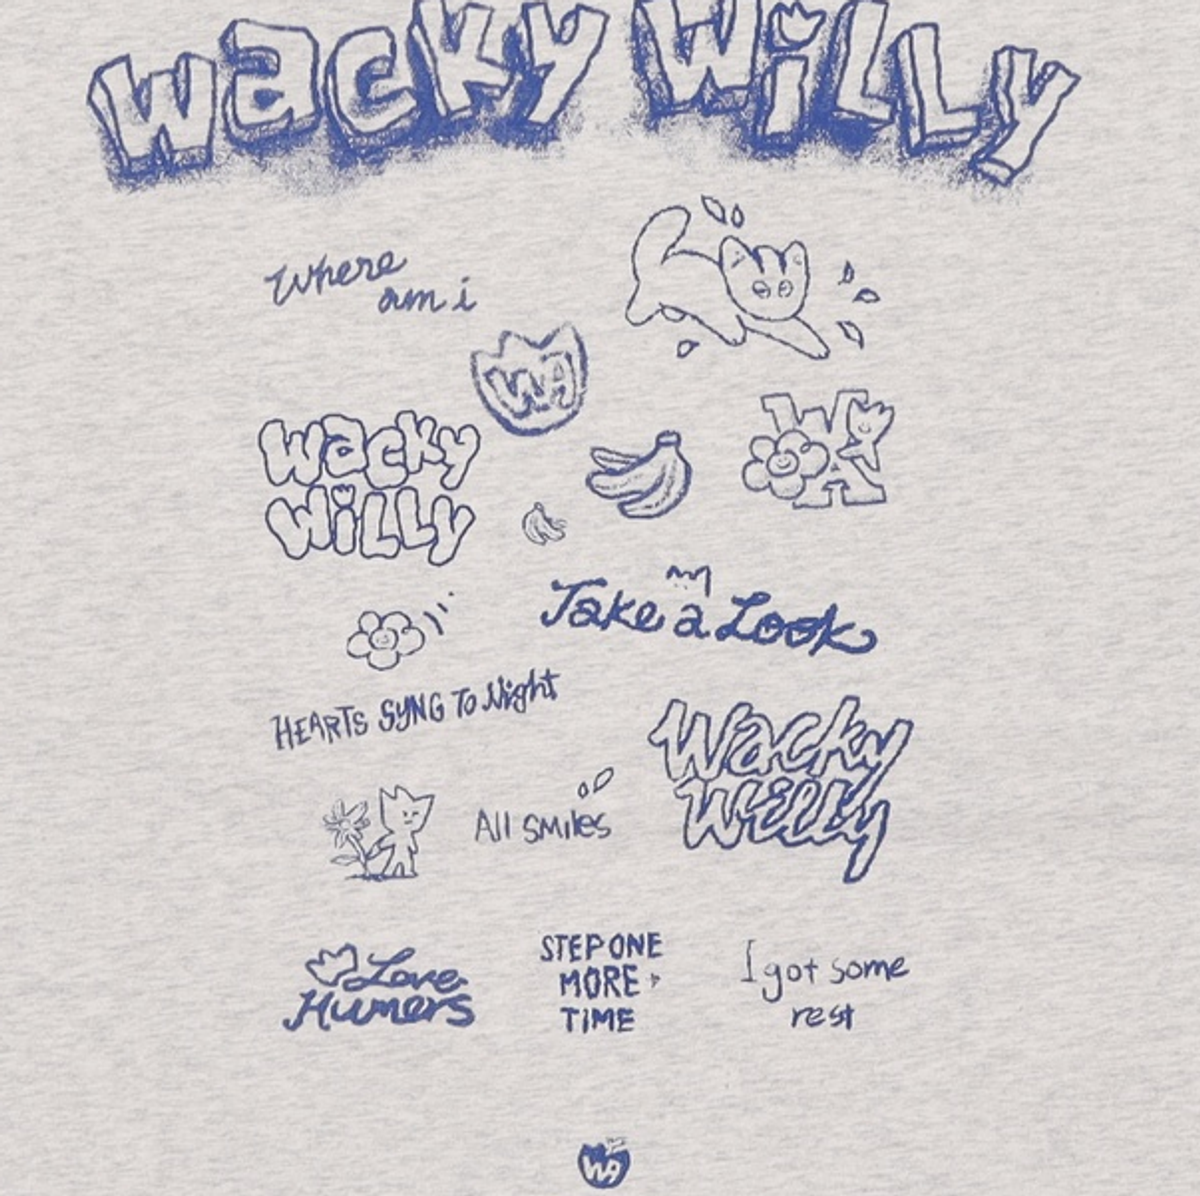 Wacky Willy
Where
am i
WA
Wacky
Willy
WA
Take a Look
HEARTS SYNG To Night
All SMiles
Wacky
Willy
Love
Humers
STEP ONE
MORE
TiME
I got some
rest
WA